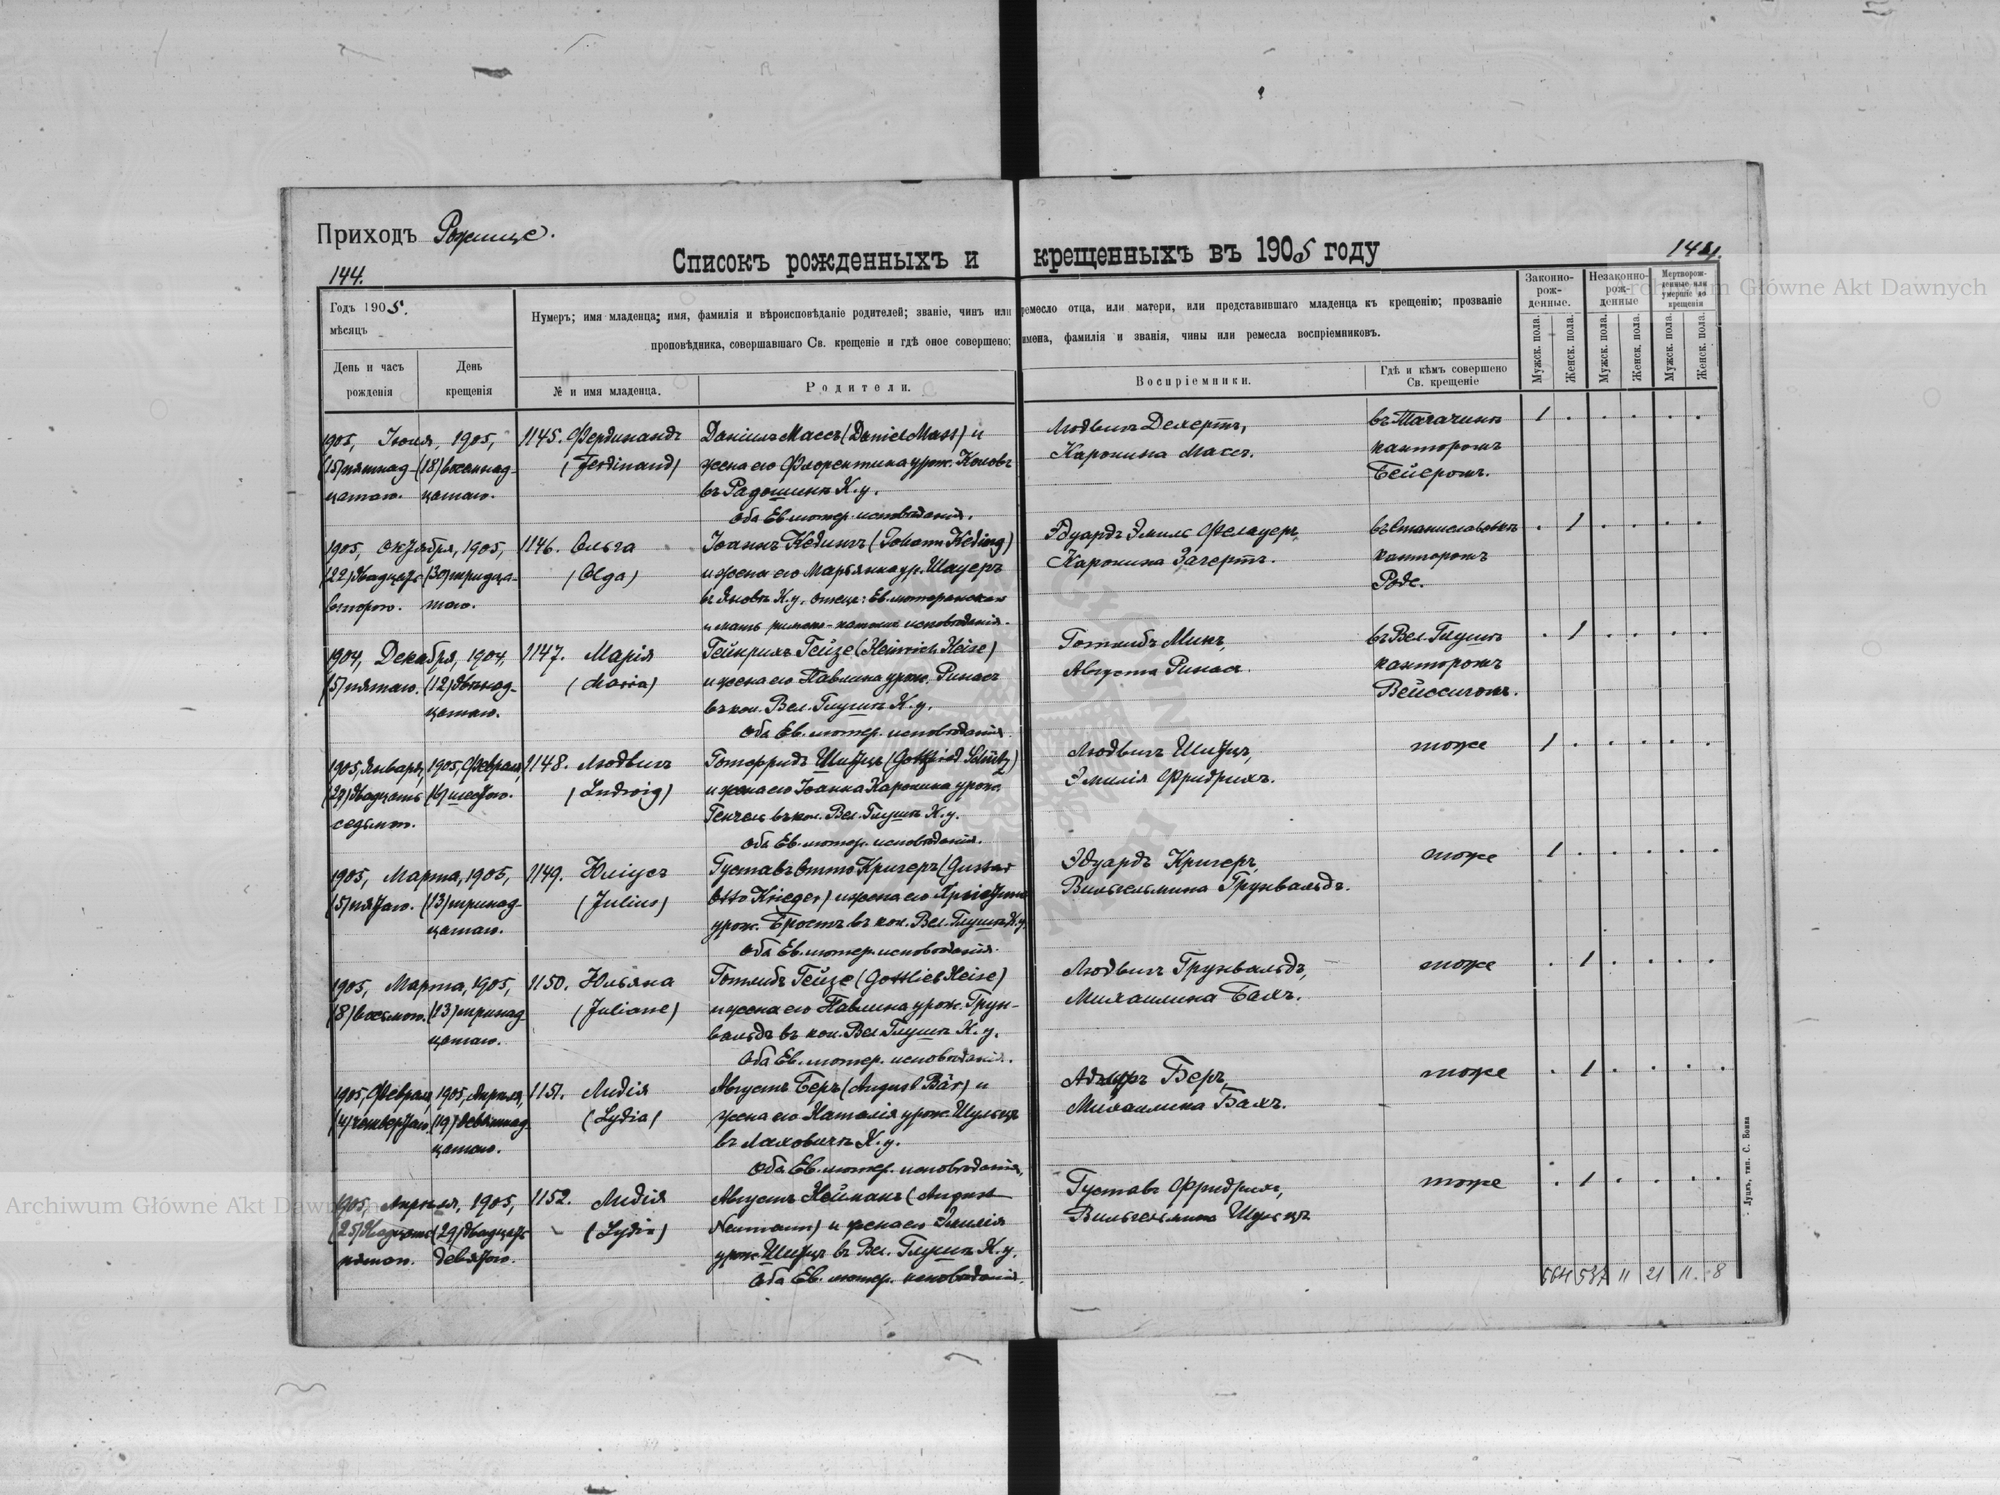 Приходъ Рожище.
Списокъ рожденныхъ и крещенныхъ въ 1905 году
144.
144.
Годъ 1905.
мѣсяцъ
День и часъ
рожденія
День
крещенія
Нумеръ; имя младенца; имя, фамилія и вѣроисповѣданіе родителей; званіе, чинъ или ремесло отца, или матери, или представившаго младенца къ крещенію; прозваніе
проповѣдника, совершавшаго Св. крещеніе и гдѣ оное совершено; имена, фамилія и званія, чины или ремесла воспріемниковъ.
№ и имя младенца.
Родители.
Воспріемники.
Гдѣ и кѣмъ совершено
Св. крещеніе
Законно-
рож-
денные.
Незаконно-
рож-
денные
Мертворож-
денные или
умершіе до
крещенія
Мужск. пола.
Женск. пола.
Мужск. пола.
Женск. пола.
Мужск. пола.
Женск. пола.
1905, Іюля, 1905,
(15) пятнад-
цатаго.
(18) восемнад-
цатаго.
1145. Фердинандъ
(Ferdinand)
Даніилъ Массъ (Daniel Mass) и
жена его Флорентина урож.
въ Радошинѣ К. у.
Оба Ев. лютер. исповѣданія.
Людвигъ Дехертъ,
Каролина Массъ.
канторомъ
Бейеромъ.
1
1905, Октября, 1905,
(22) двадцать
второго.
(30) тридца-
таго.
1146. Ольга
(Olga)
Іоаннъ Кедингъ (Johann Keding)
и жена его Марьянна ур. Шауеръ
К. у. отецъ: Ев. лютеранскаго
и мать римско-катол. исповѣданія.
Эдуардъ Эмиль
Каролина Загертъ.
въ Станиславовкѣ
канторомъ
Роде.
1
1904, Декабря, 1904,
(5) пятаго.
(12) двѣнад-
цатаго.
1147. Марія
(Maria)
Гейнрихъ Гейзе (Heinrich Heise)
и жена его Павлина урож. Ринасъ
въ кол. Вел. Глушѣ К. у.
Оба Ев. лютер. исповѣданія.
Готлибъ Минъ,
Августа Ринасъ.
въ Вел. Глушѣ
канторомъ
1
1905, Января, 1905, Февраля
(27) двадцать
седьмого.
(6) шестого.
1148. Людвигъ
(Ludwig)
Готфридъ Шицъ (Gottfried Schütz)
и жена его Іоанна Каролина урож.
въ кол. Вел. Глушѣ К. у.
Оба Ев. лютер. исповѣданія.
Людвигъ Шицъ,
Эмилія Фридрихъ.
тоже
1
1905, Марта, 1905,
(5) пятаго.
(13) тринад-
цатаго.
1149. Юліусъ
(Julius)
Густавъ Отто Кригеръ (Gustav
Otto Krieger) и жена его Христина
урож. Бростъ въ кол. Вел. Глушѣ К. у.
Оба Ев. лютер. исповѣданія.
Эдуардъ Кригеръ,
Вильгельмина Грунвальдъ.
тоже
1
1905, Марта, 1905,
(8) восьмого.
(13) тринад-
цатаго.
1150. Юльяна
(Juliane)
Готлибъ Гейзе (Gottlieb Heise)
и жена его Павлина урож. Грун-
вальдъ въ кол. Вел. Глушѣ К. у.
Оба Ев. лютер. исповѣданія.
Людвигъ Грунвальдъ,
Михаилина Бахъ.
тоже
1
1905, Февраля, 1905, Апрѣля,
(4) четвертаго.
(19) девятнад-
цатаго.
1151. Лидія
(Lydia)
Августъ Беръ (August Bär) и
жена его Наталія урож. Шульцъ
въ Лаховичѣ К. у.
Оба Ев. лютер. исповѣданія.
Беръ,
Михаилина Бахъ.
тоже
1
1905, Апрѣля, 1905,
(25) двадцать
пятаго.
(29) двадцать
девятаго.
1152. Лидія
(Lydia)
Августъ Нейманъ (August
Neumann) и жена его Эмилія
урож. Шицъ въ Вел. Глушѣ К. у.
Оба Ев. лютер. исповѣданія.
Густавъ Фридрихъ,
Вильгельмина Шульцъ
тоже
1
564 587 11 21 11 8
Луцкъ, тип. С. Бонка
Archiwum Główne Akt Dawnych
Archiwum Główne Akt Dawnych